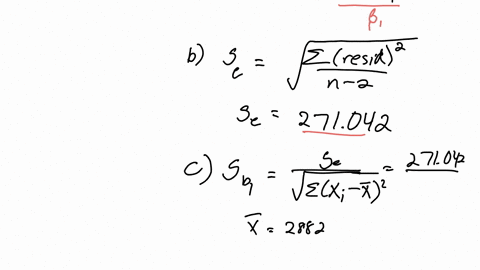 β₁
b) Sₑ = √(Σ(resid)² / n-2)
Sₑ = 271.042
c) S_b₁ = Sₑ / √(Σ(Xᵢ-X̄)²) = 271.042
X̄ = 2882